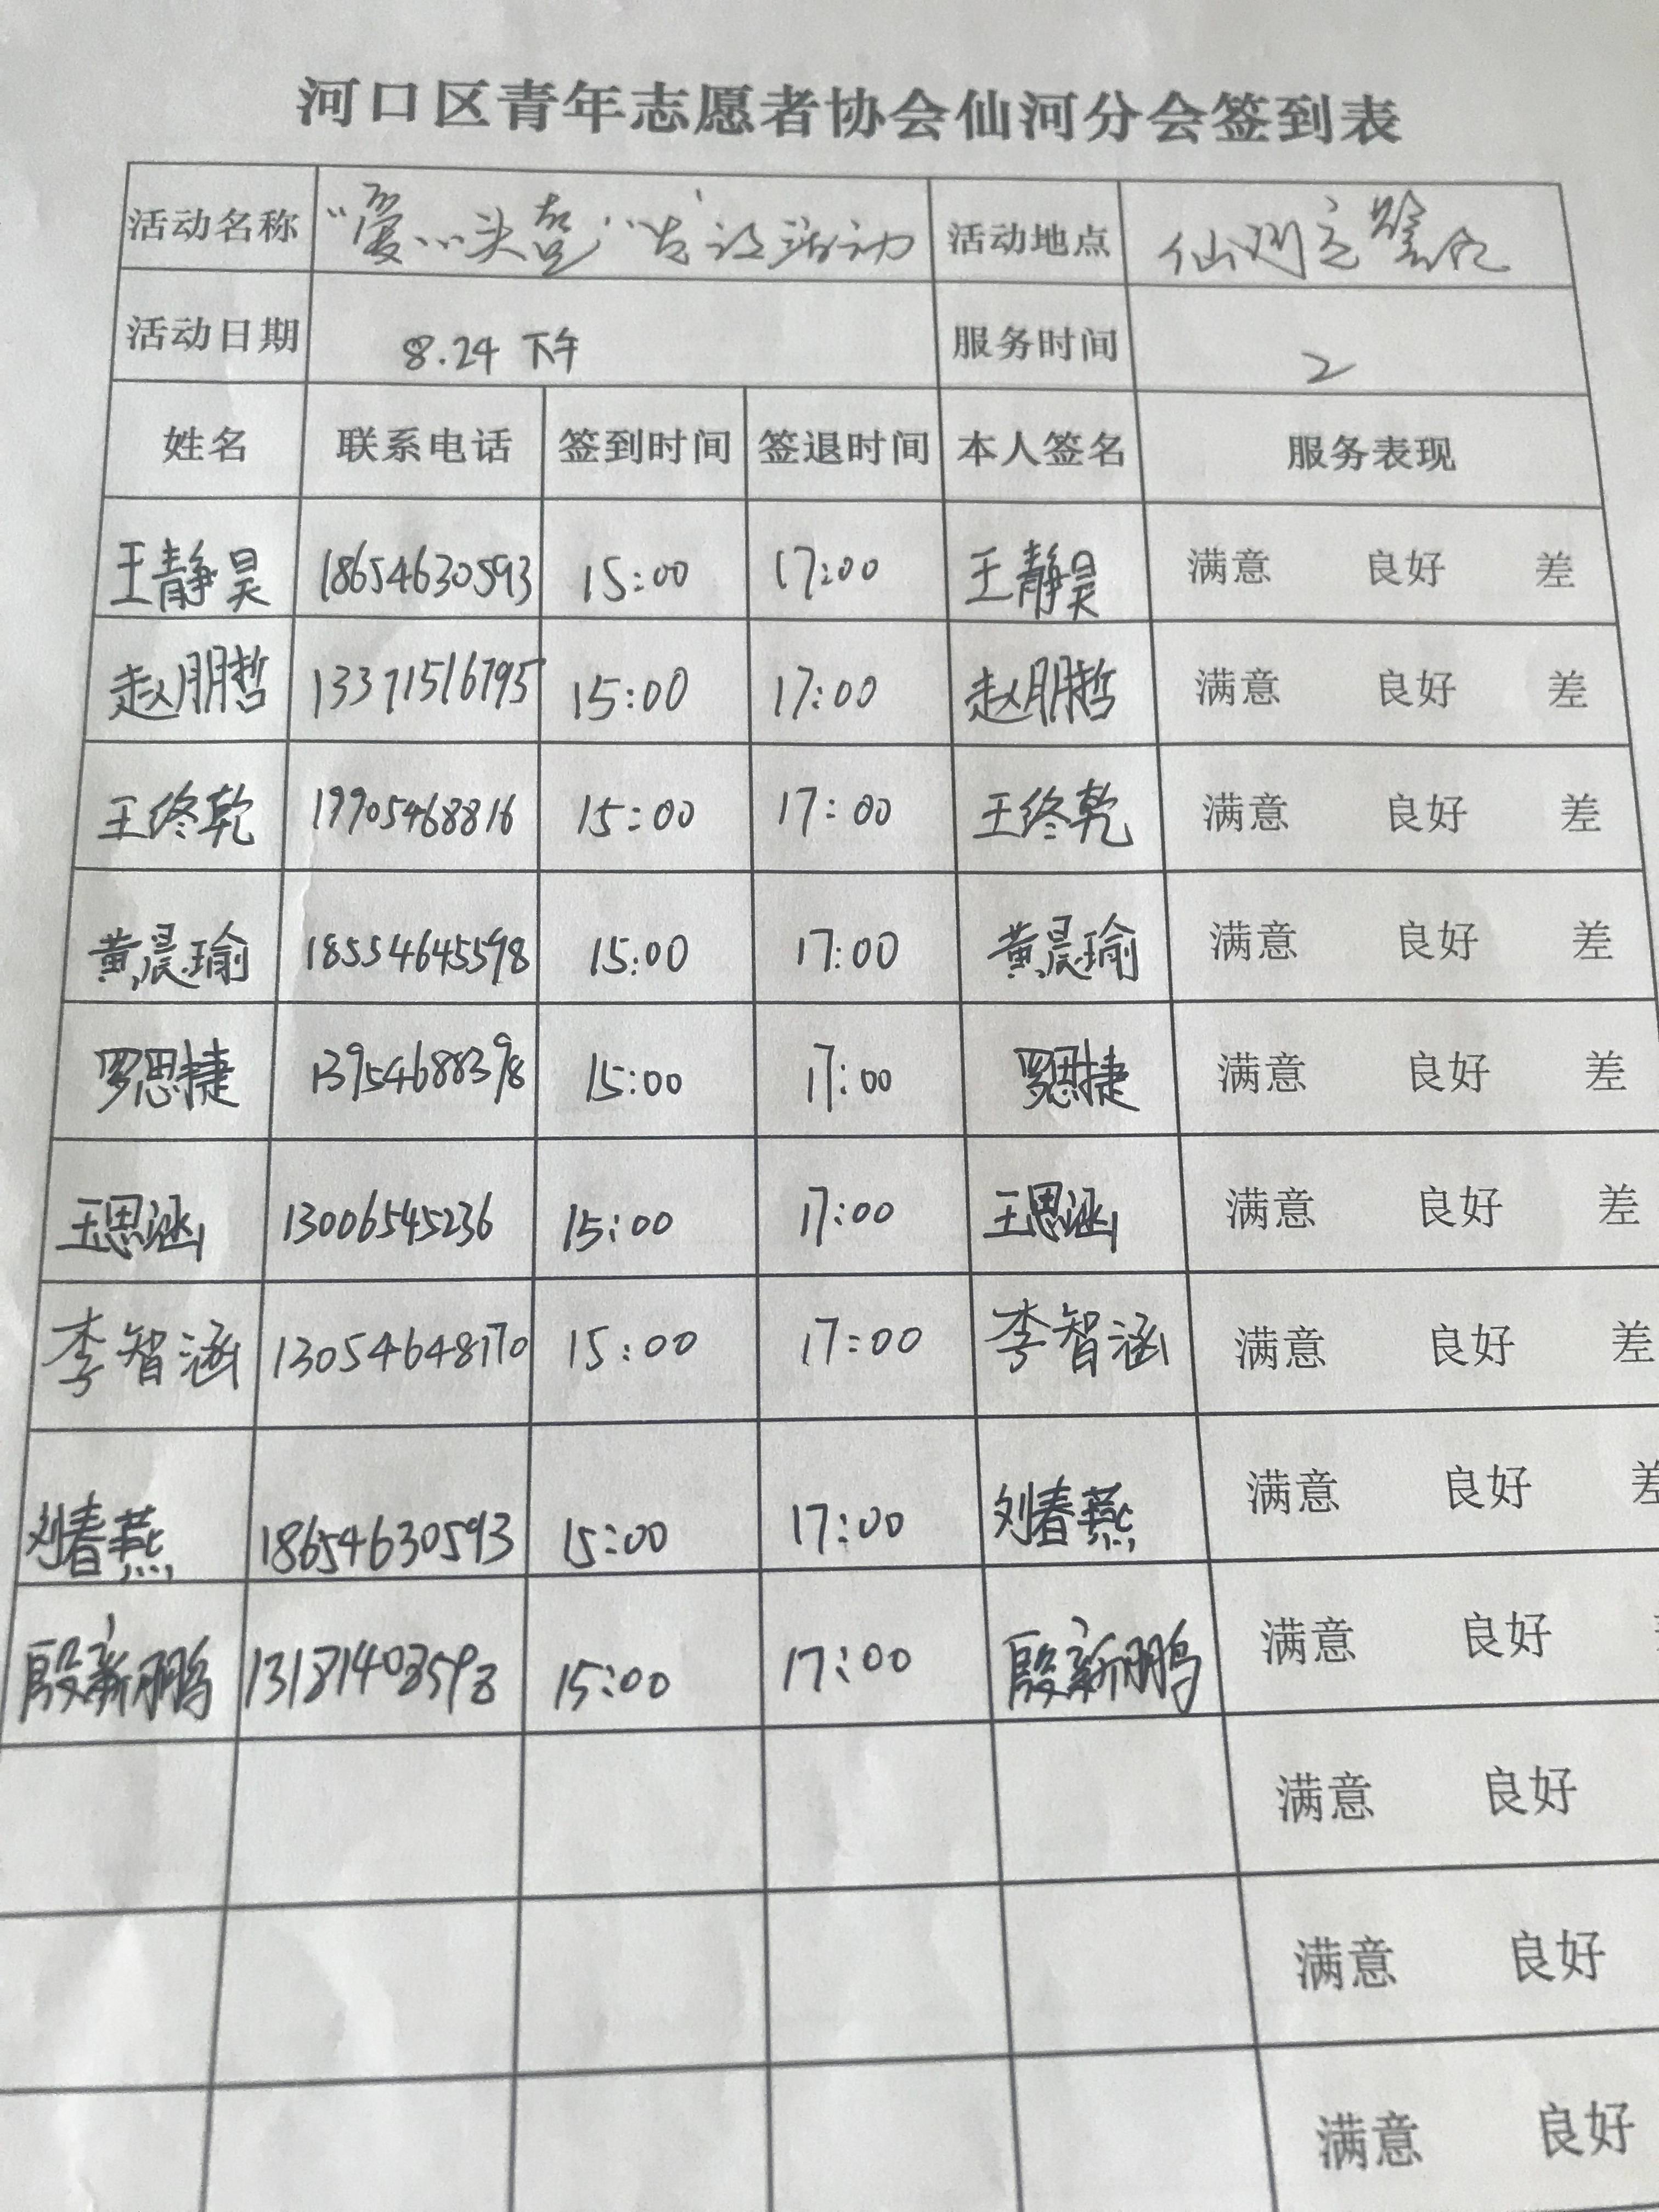 河口区青年志愿者协会仙河分会签到表
活动名称 "爱心头盔" 活动 活动地点 仙河
活动日期 8.24 下午 服务时间 2
姓名 联系电话 签到时间 签退时间 本人签名 服务表现
王静昊 18654630593 15:00 17:00 王静昊 满意 良好 差
赵朋哲 13371516795 15:00 17:00 赵朋哲 满意 良好 差
王终乾 19905468816 15:00 17:00 王终乾 满意 良好 差
黄晨瑜 18554645598 15:00 17:00 黄晨瑜 满意 良好 差
罗思捷 13954688398 15:00 17:00 罗思捷 满意 良好 差
王思涵 13006545236 15:00 17:00 王思涵 满意 良好 差
李智涵 13054648170 15:00 17:00 李智涵 满意 良好 差
刘春燕 18654630593 15:00 17:00 刘春燕 满意 良好 差
殷新鹏 15:00 17:00 殷新鹏 满意 良好
满意 良好
满意 良好
满意 良好